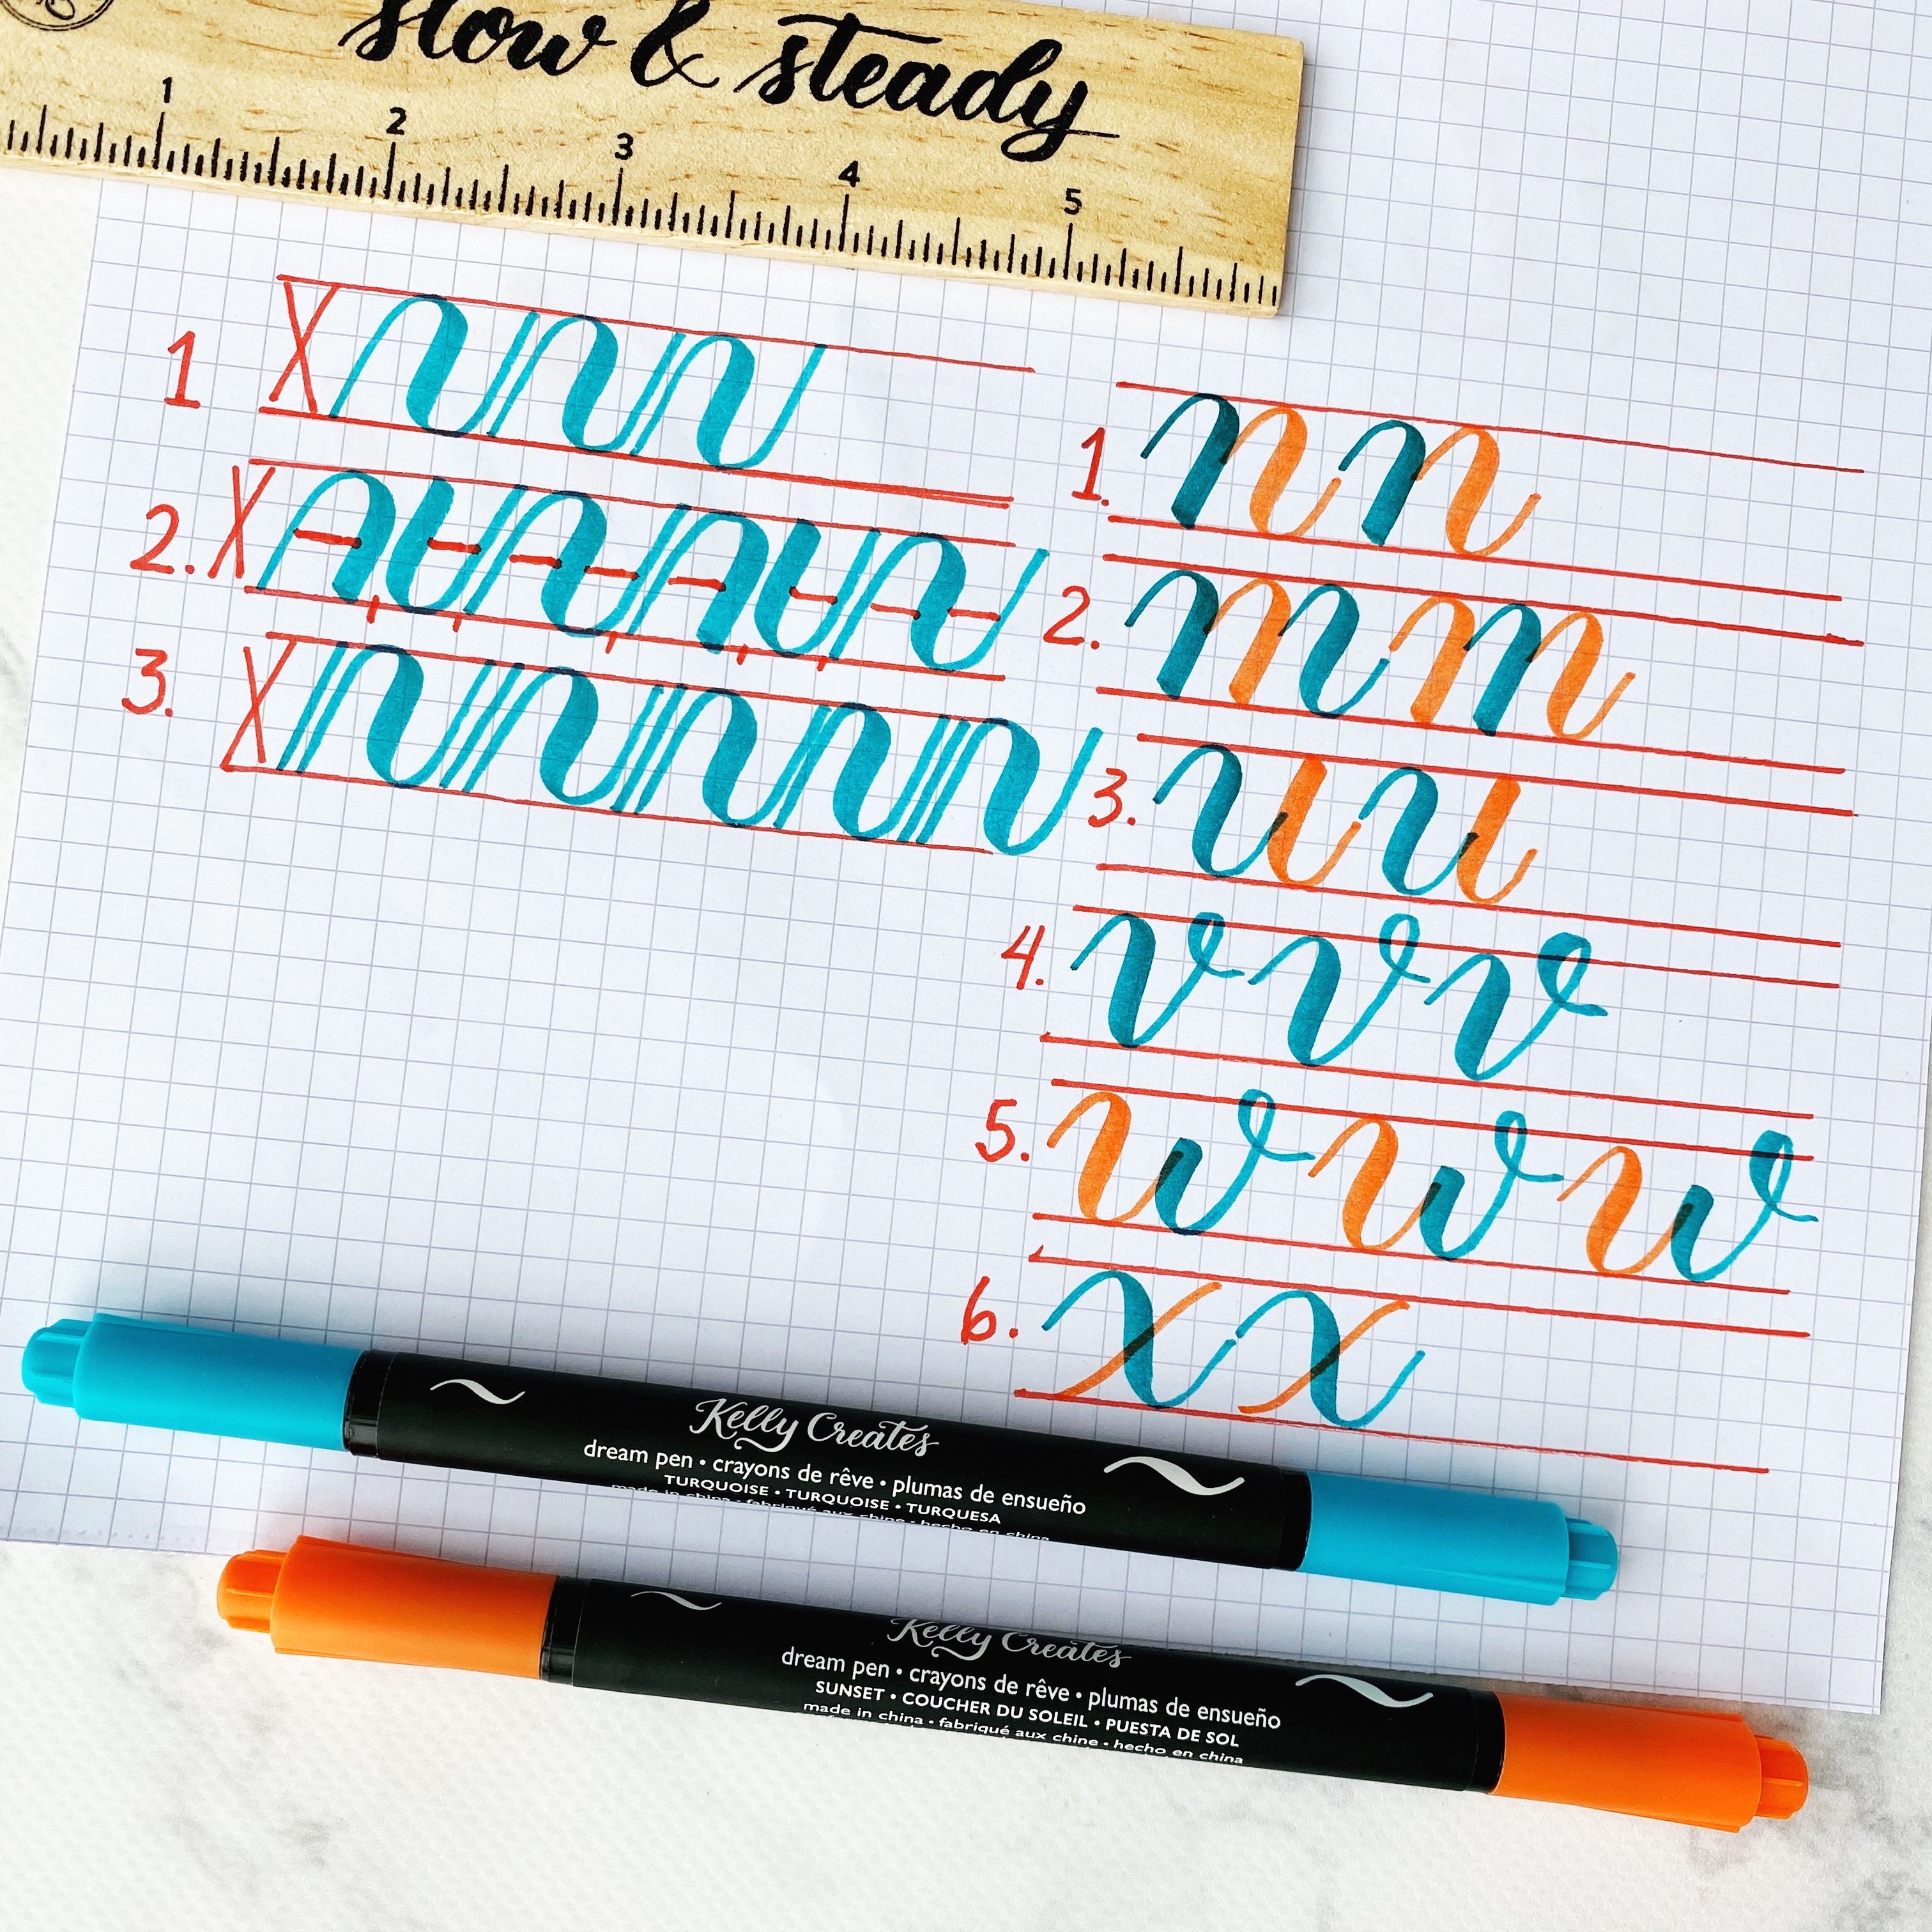 slow & steady
1 2 3 4 5
1 X
2. X
3. X
1. n n
2. m m
3. u u
4. v v v
5. w w w
6. x x
Kelly Creates
dream pen • crayons de rêve • plumas de ensueño
TURQUOISE • TURQUOISE • TURQUESA
made in china • fabriqué aux chine • hecho en china
Kelly Creates
dream pen • crayons de rêve • plumas de ensueño
SUNSET • COUCHER DU SOLEIL • PUESTA DE SOL
made in china • fabriqué aux chine • hecho en china